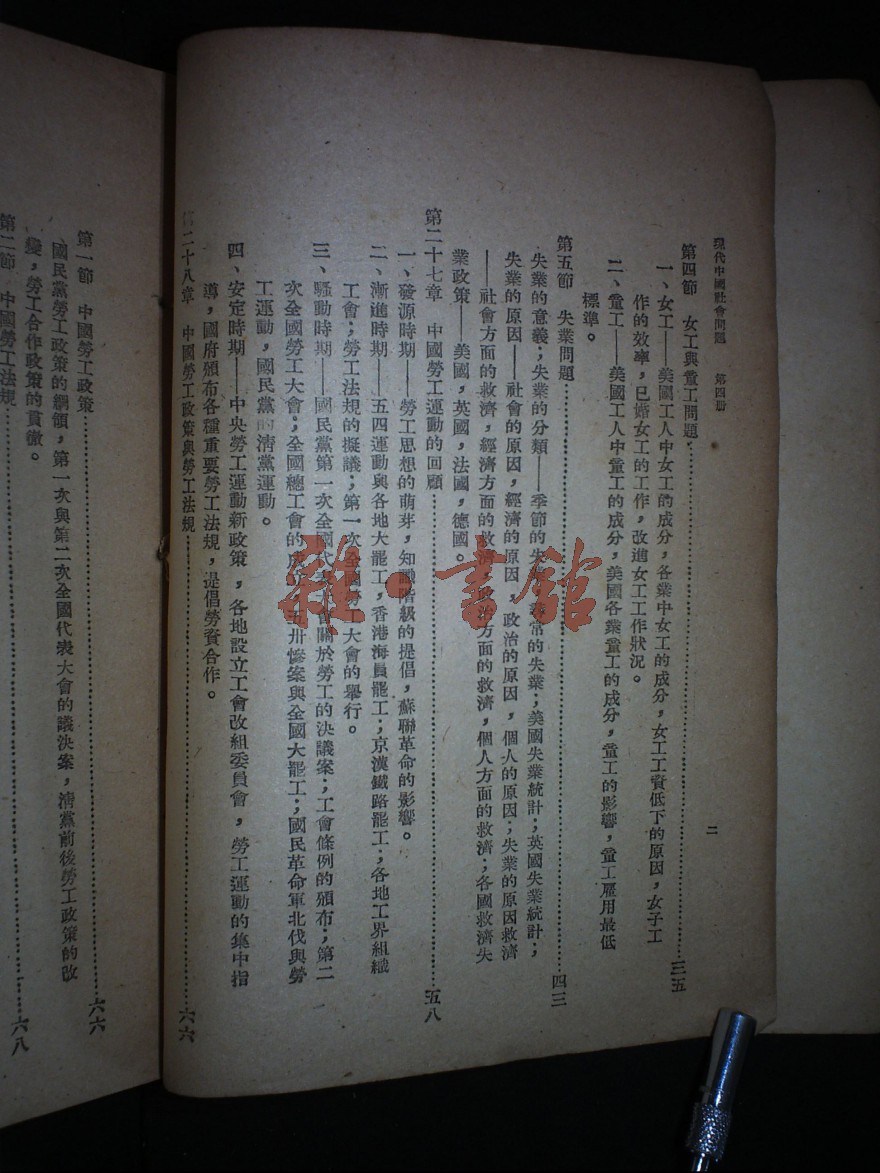 現代中國社會問題　第四册
二
第四節　女工與童工問題……三五
一、女工——美國工人中女工的成分，各業中女工的成分，女工工資低下的原因，女子工
作的效率，已婚女工的工作，改進女工工作狀況。
二、童工——美國工人中童工的成分，美國各業童工的成分，童工的影響，童工雇用最低
標準。
第五節　失業問題……四三
失業的意義；失業的分類——季節的失業，常的失業；美國失業統計；英國失業統計；
失業的原因——社會的原因，經濟的原因，政治的原因，個人的原因；失業的原因救濟
——社會方面的救濟，經濟方面的救濟，政治方面的救濟，個人方面的救濟；各國救濟失
業政策——美國，英國，法國，德國。
第二十七章　中國勞工運動的回顧……五八
一、發源時期——勞工思想的萌芽，知識階級的提倡，蘇聯革命的影響。
二、漸進時期——五四運動與各地大罷工，香港海員罷工；京漢鐵路罷工；各地工界組織
工會；勞工法規的擬議；第一次全國勞工大會的舉行。
三、騷動時期——國民黨第一次全國代表大會關於勞工的決議案；工會條例的頒布；第二
次全國勞工大會；全國總工會的成立；五卅慘案與全國大罷工；國民革命軍北伐與勞
工運動，國民黨的清黨運動。
四、安定時期——中央勞工運動新政策，各地設立工會改組委員會，勞工運動的集中指
導，國府頒布各種重要勞工法規，是倡勞資合作。
第二十八章　中國勞工政策與勞工法規……六六
第一節　中國勞工政策……六六
國民黨勞工政策的綱領，第一次與第二次全國代表大會的議決案，清黨前後勞工政策的改
變，勞工合作政策的貫徹。
第二節　中國勞工法規……六八
雜·書館